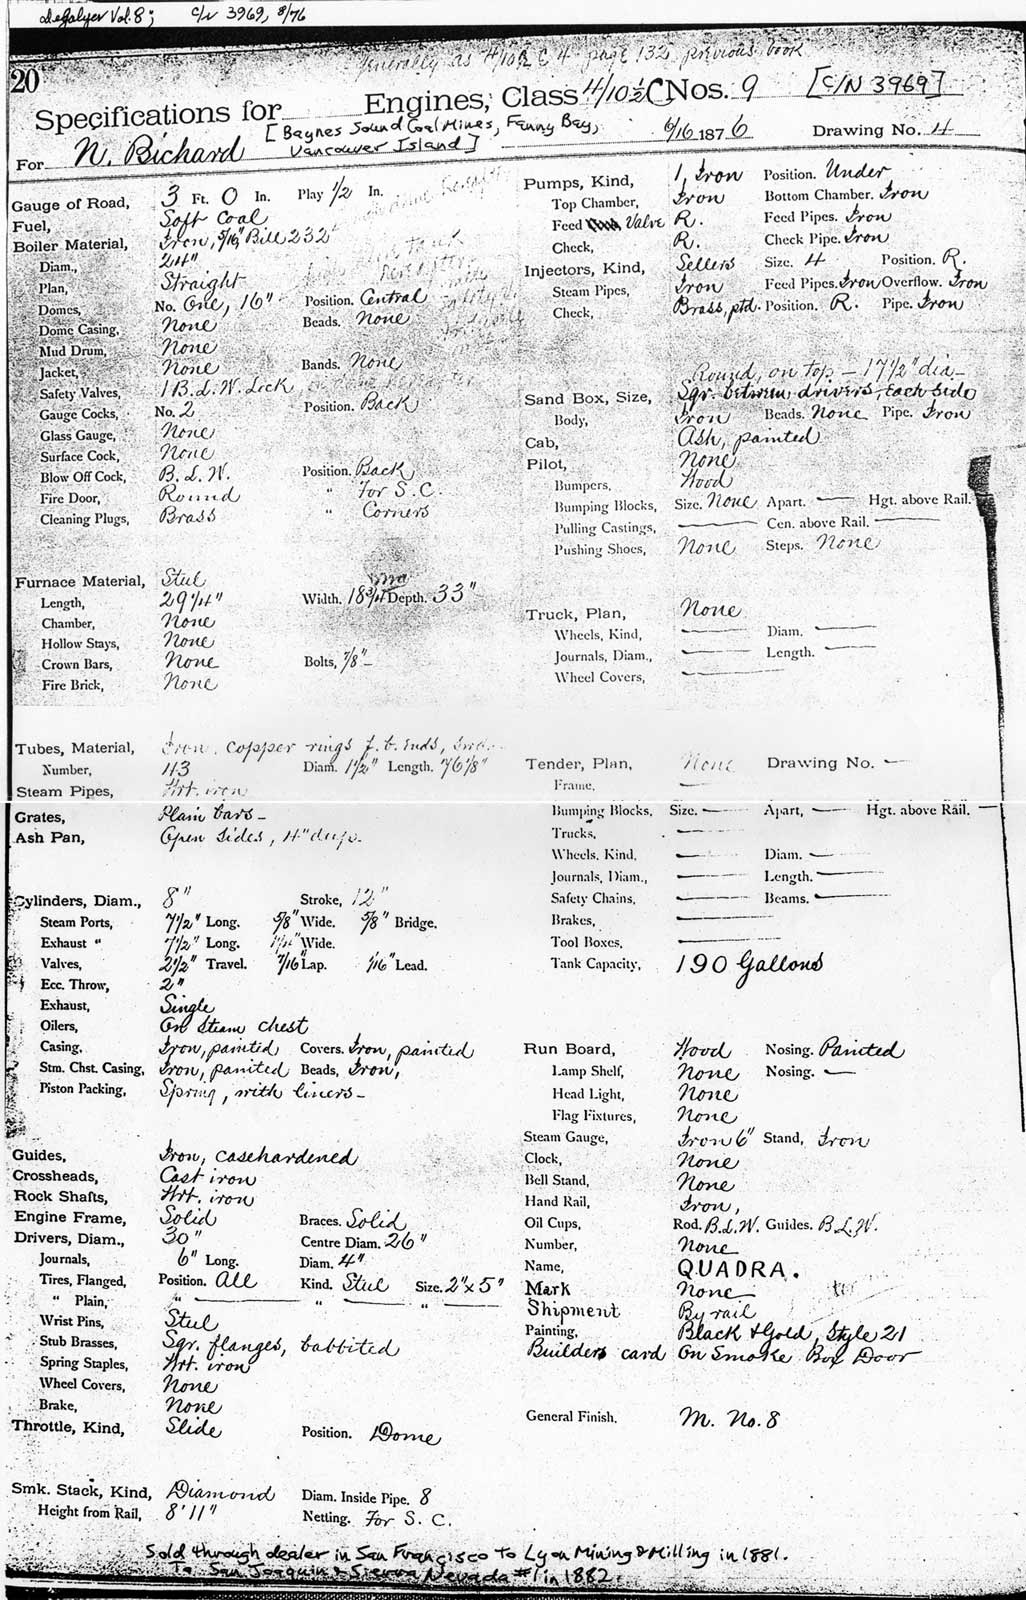 DeGolyer Vol. 8; C/N 3969, 8/76
Generally as 4/10½ C 4 page 132 previous book
20
Specifications for Engines, Class 4/10½ C Nos. 9 [C/N 3969]
[Baynes Sound Coal Mines, Fanny Bay,
Vancouver Island]
For N. Bichard 6/16 1876 Drawing No. 4
Gauge of Road, 3 Ft. 0 In. Play 1/2 In.
Fuel, Soft Coal
Boiler Material, Iron, 5/16" Bill 232
Diam., 24"
Plan, Straight
Domes, No. One, 16" Position. Central
Dome Casing, None Beads. None
Mud Drum, None
Jacket, None Bands. None
Safety Valves, 1 B. L. W. Lock
Gauge Cocks, No. 2 Position. Back
Glass Gauge, None
Surface Cock, None
Blow Off Cock, B. L. W. Position. Back
Fire Door, Round " For S. C.
Cleaning Plugs, Brass " Corners
Furnace Material, Steel
Length, 29 1/4" Width. 18 3/4 Depth. 33"
Chamber, None
Hollow Stays, None
Crown Bars, None Bolts, 7/8"
Fire Brick, None
Tubes, Material, Iron, copper rings f. b. ends,
Number, 43 Diam. 1 1/2" Length. 76 1/8"
Steam Pipes, Wrt. iron
Grates, Plain bars
Ash Pan, Open sides, 4" deep.
Cylinders, Diam., 8" Stroke, 12"
Steam Ports, 7 1/2" Long. 5/8" Wide. 5/8" Bridge.
Exhaust " 7 1/2" Long. 1 1/4" Wide.
Valves, 2 1/2" Travel. 7/16" Lap. 1/16" Lead.
Ecc. Throw, 2"
Exhaust, Single
Oilers, On Steam chest
Casing, Iron, painted Covers. Iron, painted
Stm. Chst. Casing, Iron, painted Beads, Iron,
Piston Packing, Spring, with liners
Guides, Iron, casehardened
Crossheads, Cast iron
Rock Shafts, Wrt. iron
Engine Frame, Solid Braces. Solid
Drivers, Diam., 30" Centre Diam. 26"
Journals, 6" Long. Diam. 4"
Tires, Flanged, Position. All Kind. Steel Size. 2" x 5"
" Plain, " " "
Wrist Pins, Steel
Stub Brasses, Sqr. flanges, babbited
Spring Staples, Wrt. iron
Wheel Covers, None
Brake, None
Throttle, Kind, Slide Position. Dome
Smk. Stack, Kind, Diamond Diam. Inside Pipe. 8
Height from Rail, 8' 11" Netting. For S. C.
Pumps, Kind, 1, Iron Position. Under
Top Chamber, Iron Bottom Chamber. Iron
Feed Valve R. Feed Pipes. Iron
Check, R. Check Pipe. Iron
Injectors, Kind, Sellers Size. 4 Position. R.
Steam Pipes, Iron Feed Pipes. Iron Overflow. Iron
Check, Brass, ptd. Position. R. Pipe. Iron
Round, on top – 17 1/2" dia
Sand Box, Size, Sqr. between drivers, each side
Body, Iron Beads. None Pipe. Iron
Cab, Ash, painted
Pilot, None
Bumpers, Wood
Bumping Blocks, Size. None Apart. — Hgt. above Rail.
Pulling Castings, — Cen. above Rail. —
Pushing Shoes, None Steps. None
Truck, Plan, None
Wheels, Kind, — Diam. —
Journals, Diam., — Length. —
Wheel Covers, —
Tender, Plan, None Drawing No. —
Frame, —
Bumping Blocks, Size. — Apart, — Hgt. above Rail. —
Trucks, —
Wheels, Kind, — Diam. —
Journals, Diam., — Length. —
Safety Chains, — Beams. —
Brakes, —
Tool Boxes, —
Tank Capacity, 190 Gallons
Run Board, Wood Nosing. Painted
Lamp Shelf, None Nosing. —
Head Light, None
Flag Fixtures, None
Steam Gauge, Iron 6" Stand, Iron
Clock, None
Bell Stand, None
Hand Rail, Iron,
Oil Cups, Rod. B. L. W. Guides. B. L. W.
Number, None
Name, QUADRA.
Mark None
Shipment By rail
Painting, Black & Gold, Style 21
Builders card On Smoke Box Door
General Finish. M. No. 8
Sold through dealer in San Francisco to Lyon Mining & Milling in 1881.
To San Joaquin & Sierra Nevada #1 in 1882.